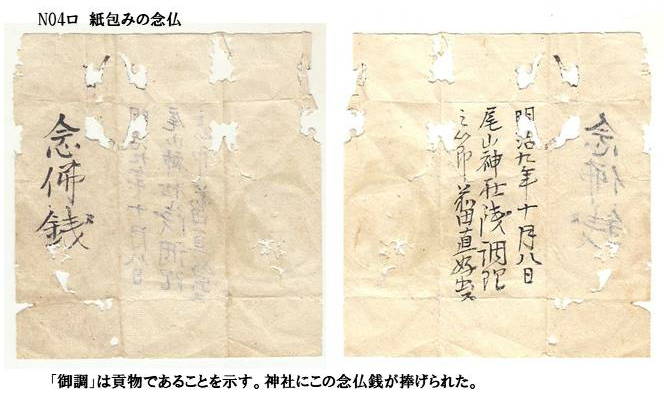 NO4ロ 紙包みの念仏
念佛銭
明治九年十月八日
尾山神社調理
之節前田直好出ス
「御調」は貢物であることを示す。神社にこの念仏銭が捧げられた。